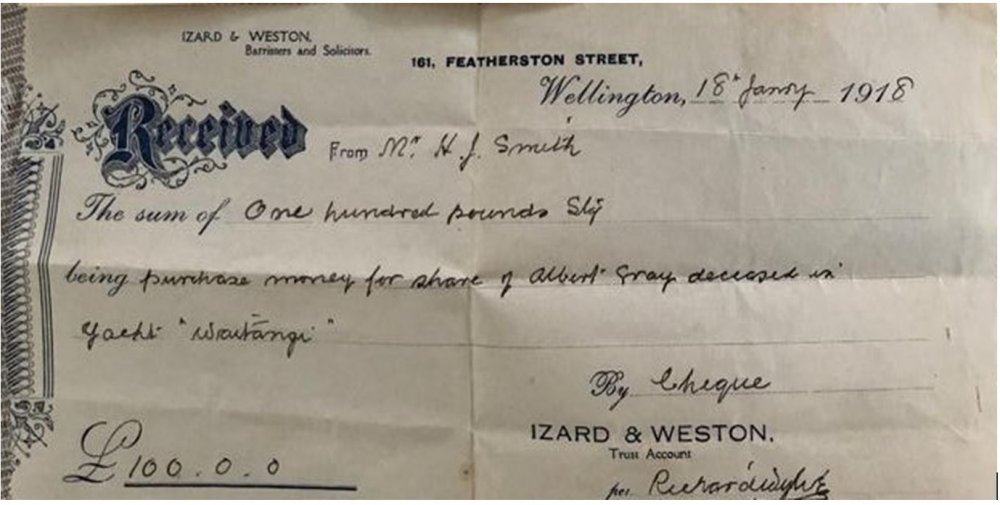 IZARD & WESTON.
Barristers and Solicitors.
161, FEATHERSTON STREET,
Wellington, 18th Janry 1918
Received From Mr H. J. Smith
The sum of One hundred pounds Stg
being purchase money for share of Albert Gray deceased in
Yacht "Waitangi"
By Cheque
£100.0.0
IZARD & WESTON.
Trust Account
per.